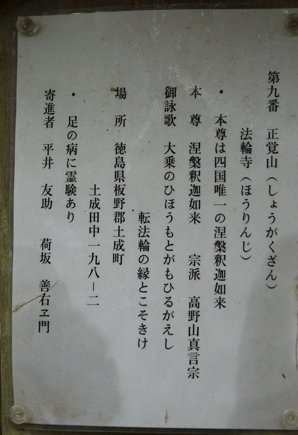 第九番　正覚山（しょうがくざん）
法輪寺（ほうりんじ）
・本尊は四国唯一の涅槃釈迦如来
本　尊　涅槃釈迦如来　宗派　高野山真言宗
御詠歌　大乗のひほうもとがもひるがえし
転法輪の縁とこそきけ
場　所　徳島県板野郡土成町
土成田中一九八－二
・足の病に霊験あり
寄進者　平井　友助　荷坂　善右ヱ門